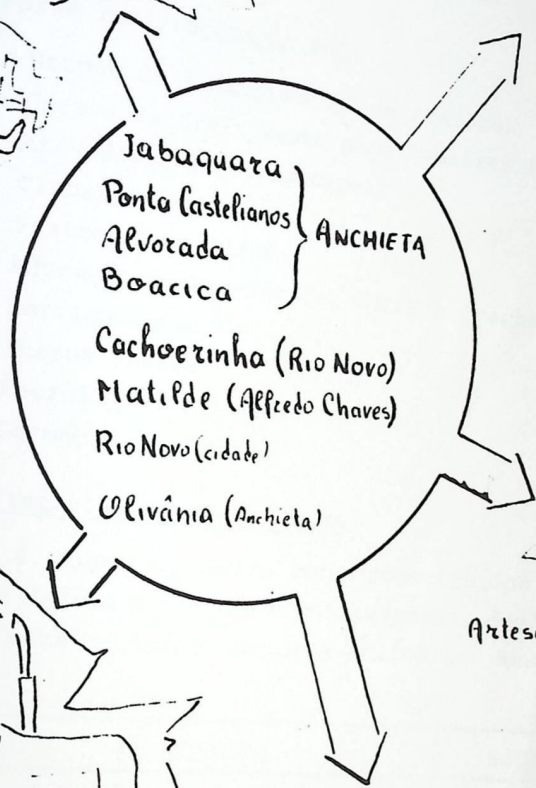 Jabaquara
Ponta Castelianos
Alvorada
Boacica
ANCHIETA
Cachoerinha (Rio Novo)
Matilde (Alfredo Chaves)
Rio Novo (cidade)
Olivânia (Anchieta)